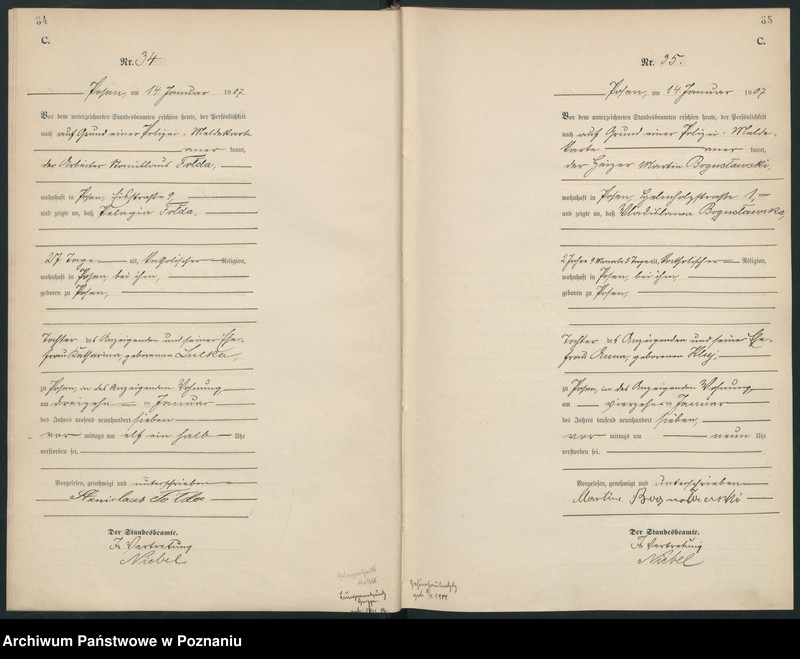 34
C.
Nr. 34
Posen, am 14. Januar 1907
Vor dem unterzeichneten Standesbeamten erschien heute, der Persönlichkeit
nach auf Grund einer Polizei-Meldekarte
aner kannt,
der Arbeiter Stanislaus Tolda,
wohnhaft in Posen,
und zeigte an, daß Pelagia Tolda,
27 Tage alt, katholischer Religion,
wohnhaft in Posen, bei ihm,
geboren zu Posen,
Tochter des Anzeigenden und seiner Ehe-
frau Katharina, geborenen Lulka,
zu Posen, in des Anzeigenden Wohnung
am dreizehn ten Januar
des Jahres tausend neunhundert sieben
vor mittags um elf ein halb Uhr
verstorben sei.
Vorgelesen, genehmigt und unterschrieben
Stanislaus Tolda
Der Standesbeamte.
In Vertretung
Niebel
35
C.
Nr. 35.
Posen, am 14. Januar 1907
Vor dem unterzeichneten Standesbeamten erschien heute, der Persönlichkeit
nach auf Grund einer Polizei-Melde-
karte aner kannt,
der Heizer Martin Bogusławski,
wohnhaft in Posen, 1,
und zeigte an, daß Wladislawa Bogusławska,
2 Jahre 9 Monate 5 Tage alt, katholischer Religion,
wohnhaft in Posen, bei ihm,
geboren zu Posen,
Tochter des Anzeigenden und seiner Ehe-
frau Anna, geborenen Kluj,
zu Posen, in des Anzeigenden Wohnung,
am vierzehn ten Januar
des Jahres tausend neunhundert sieben,
vor mittags um neun Uhr
verstorben sei.
Vorgelesen, genehmigt und unterschrieben
Martin Bogusławski
Der Standesbeamte.
In Vertretung
Niebel
Archiwum Państwowe w Poznaniu